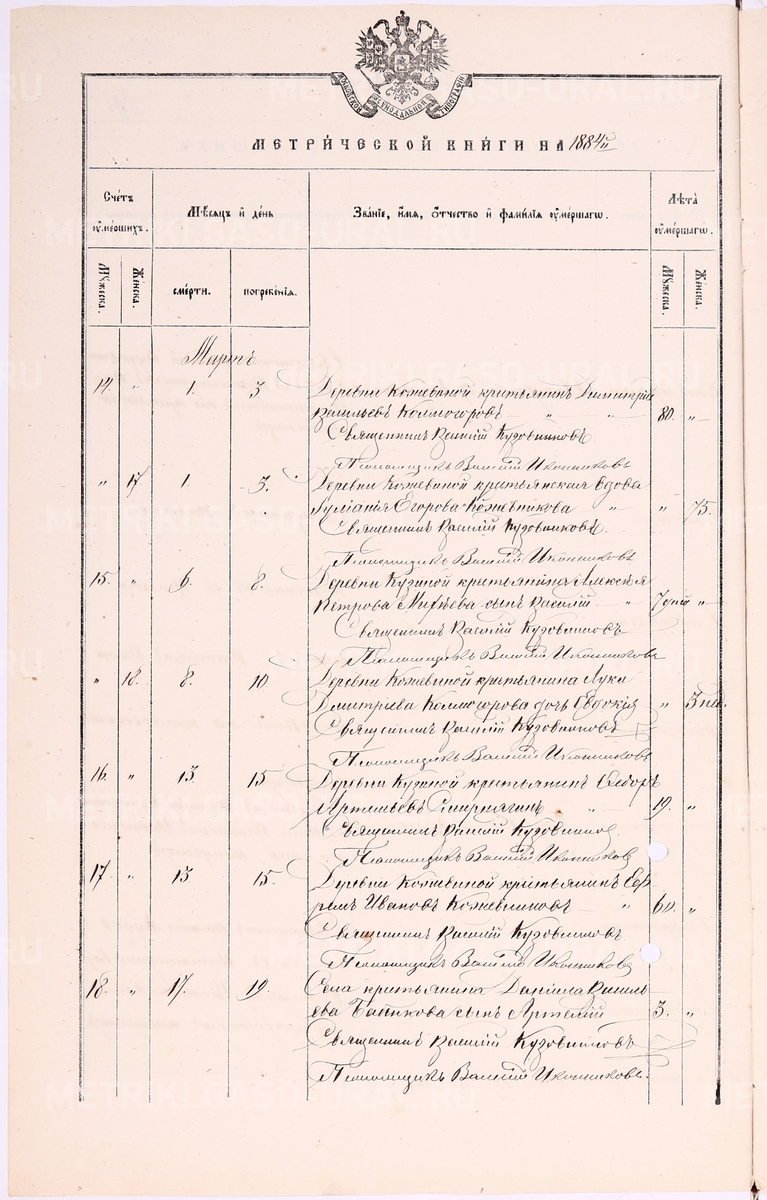 МОСКОВСКОЙ СѴНОДАЛЬНОЙ ТИПОГРАФІИ
МЕТРИ́ЧЕСКОЙ КНИ́ГИ НА 1884й
Сче́тъ ᲂу҆ме́ршихъ.
Мѣ́сяцъ и҆ де́нь
Зва́нїе, и҆́мѧ, ѻ҆́тчество и҆ фами́лїѧ ᲂу҆ме́ршагѡ.
Лѣ́та ᲂу҆ме́ршагѡ.
Мꙋ́жеска.
Же́нска.
сме́рти.
погребе́нїѧ.
Мꙋ́жеска.
Же́нска.
Мартъ
14. " 1. 3 Деревни Кожевиной крестьянинъ Димитрій
Васильевъ Колмогоровъ " " 80. "
Священникъ Василій Кузовниковъ
Псаломщикъ Василій Иконниковъ
" 17 1. 3. Деревни Кожевиной крестьянская вдова
Іуліанія Егорова Кожевникова " " 75.
Священникъ Василій Кузовниковъ.
Псаломщикъ Василій Иконниковъ
15. " 6. 8. Деревни Кузиной крестьянина Алексѣя
Петрова сынъ Василій " 7 дней "
Священникъ Василій Кузовниковъ
Псаломщикъ Василій Иконниковъ
" 18. 8. 10 Деревни Кожевиной крестьянина Луки
Дмитріева Колмогорова дочь Евдокія " 3 нед.
Священникъ Василій Кузовниковъ
Псаломщикъ Василій Иконниковъ
16. " 13 15 Деревни Кузиной крестьянинъ Ѳедоръ
Артемьевъ " 19. "
Священникъ Василій Кузовников
Псаломщикъ Василій Иконников
17 " 13 15. Деревни Кожевиной крестьянинъ Еф
ремъ Ивановъ Кожевниковъ " 60. "
Священникъ Василій Кузовниковъ
Псаломщикъ Василій Иконниковъ
18. " 17. 19. Села крестьянина Даніила Василь
ева сынъ Артемій 3. "
Священникъ Василій Кузовниковъ
Псаломщикъ Василій Иконниковъ.